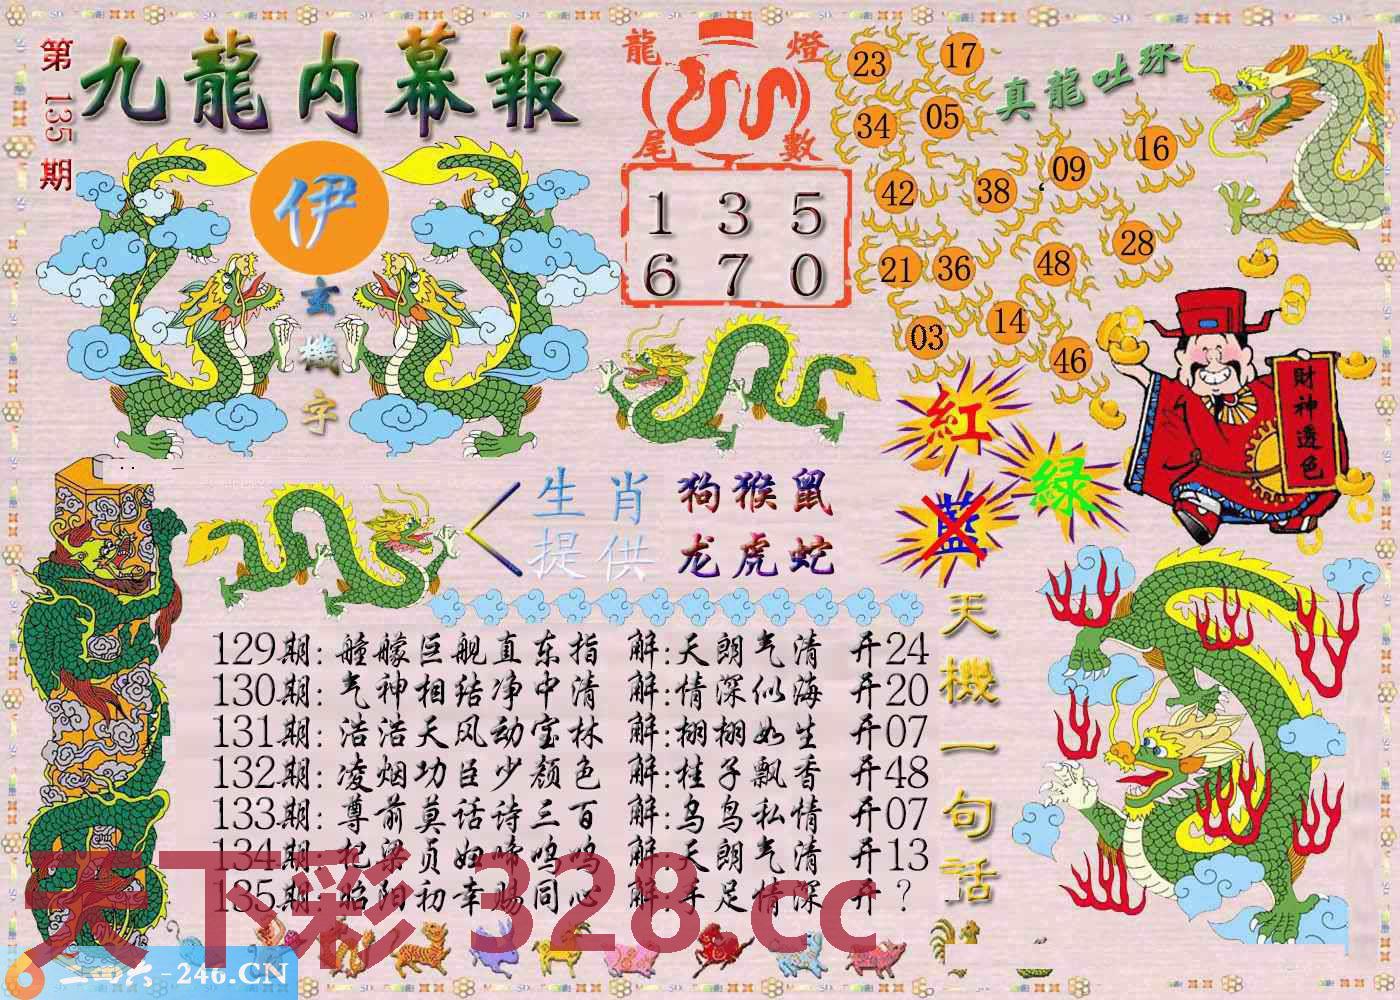 第135期
九龍内幕報
伊
玄機字
龍燈尾數
1 3 5
6 7 0
真龍吐珠
23 17
34 05
42 38 09 16
21 36 48 28
03 14 46
財神透色
紅
绿
藍
生肖 狗猴鼠
提供 龙虎蛇
129期: 艟艨巨舰直东指 解:天朗气清 开24
130期: 气神相结净中清 解:情深似海 开20
131期: 浩浩天风动宝林 解:栩栩如生 开07
132期: 凌烟功臣少颜色 解:桂子飘香 开48
133期: 尊前莫话诗三百 解:乌鸟私情 开07
134期: 杞梁贞妇啼呜呜 解:天朗气清 开13
135期: 昭阳初幸赐同心 解:手足情深 开?
天機一句話
天下彩 328.cc
二四六-246.CN